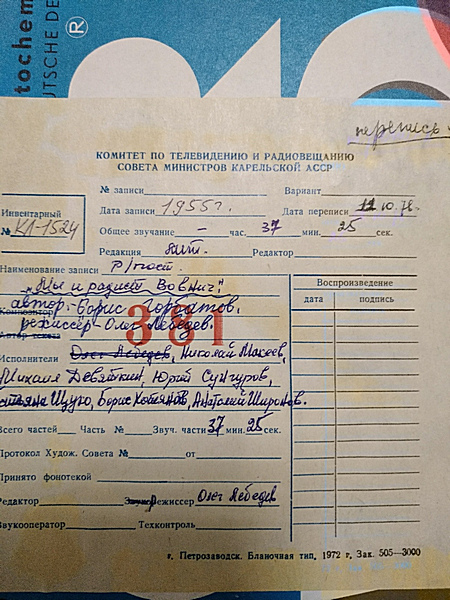 tochem
UTSCHE DE
®
перепись
КОМИТЕТ ПО ТЕЛЕВИДЕНИЮ И РАДИОВЕЩАНИЮ
СОВЕТА МИНИСТРОВ КАРЕЛЬСКОЙ АССР
№ записи Вариант
Инвентарный
№ КЛ-1524
Дата записи 1955г. Дата переписи 11 10.78.
Общее звучание — час. 37 мин. 25 сек.
Редакция Лит. Редактор
Наименование записи Р/пост.
„Мы и радист Вовнич"
Композитор автор: Борис Горбатов,
Автор текста режиссер Олег Лебедев
381
Исполнители Олег Лебедев, Николай Макеев,
Михаил Девяткин, Юрий Сунгуров,
Щуко, Борис Хотянов, Анатолий Широнов.
Воспроизведение
дата подпись
Всего частей Часть № Звуч. части 37 мин. 25 сек.
Протокол Худож. Совета № от
Принято фонотекой
Редактор Звукорежиссер Олег Лебедев
Звукооператор Техконтроль
г. Петрозаводск. Бланочная тип. 1972 г. Зак. 505—3000